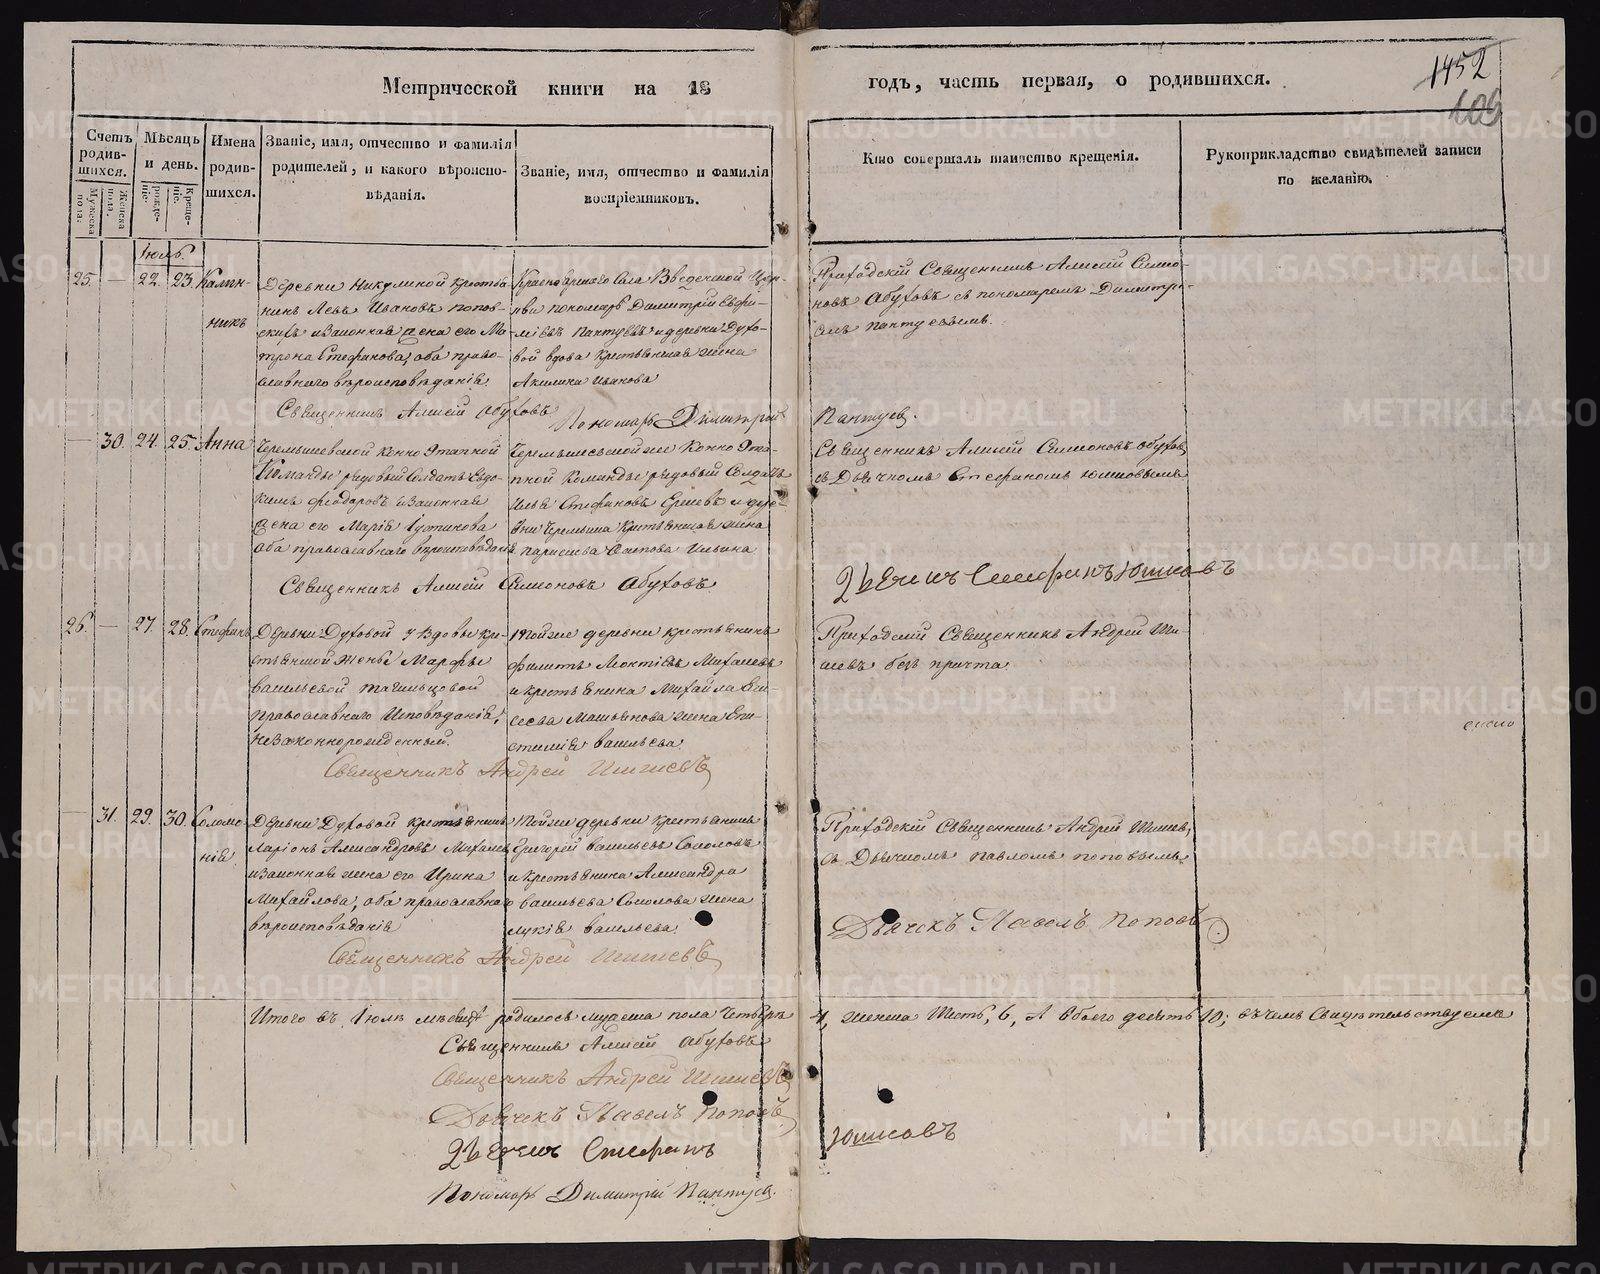 Метрической книги на 18
годъ, часть первая, о родившихся.
1452
109
Счетъ родившихся.
Мужеска пола.
Женска пола.
Мѣсяцъ и день.
рожденіе.
крещеніе.
Имена родившихся.
Званіе, имя, отчество и фамилія
родителей, и какого вѣроиспо-
вѣданія.
Званіе, имя, отчество и фамилія
воспріемниковъ.
Кто совершалъ таинство крещенія.
Рукоприкладство свидѣтелей записи
по желанію.
Іюль.
25. — 22. 23. Калин-
никъ
Деревни Никулиной крестья-
нинъ Левъ Ивановъ Попов-
скихъ и законная жена его Ма-
трона Стефанова, оба право-
славнаго вѣроисповѣданія
Красноярскаго Села Введенской Цер-
кви пономарь Димитрій Евфи-
міевъ Пантуевъ и деревни Духо-
вой вдова крестьянская жена
Акилина Иванова
Приходскій Священникъ Алексій Симо-
новъ Обуховъ съ пономаремъ Димитрі-
емъ Пантуевымъ.
Священникъ Алексій Обуховъ
Пономарь Димитрій
Пантуев.
— 30. 24. 25. Анна
Черемышевской Конно Этапной
Команды рядовый Солдатъ Евдо-
кимъ Феодоровъ и законная
жена его Марія Іустинова
оба православнаго вѣроисповѣданія
Черемышевской же Конно Эта-
пной Команды рядовый Солдатъ
Илья Стефановъ Ершевъ и дере-
вни Черемыша Крестьянская жена
Параскева Ильина
Священникъ Алексій Симоновъ Обухов
съ Дьячкомъ Стефаномъ Юшковымъ
Священникъ Алексій Симоновъ Обуховъ
Дьячекъ Стефанъ Юшковъ
26. — 27. 28. Стефанъ
Деревни Духовой у вдовы кре-
стьянской жены Марфы
Васильевой Тагильцовой
Православнаго Исповѣданія,
Незаконнорожденный.
Той же деревни крестьянинъ
Филиппъ Леонтіевъ Михалевъ
и крестьянина Михайла Ели-
сеева жена Епи-
стимія Васильева
Приходскій Священникъ Андрей Ши-
шевъ безъ причта
Священникъ Андрей Шишевъ
— 31. 29. 30. Соломо-
нія
Деревни Духовой крестьянинъ
Ларіонъ Александровъ Михалевъ
и законная жена его Ирина
Михайлова, оба православнаго
вѣроисповѣданія
Той же деревни крестьянинъ
Григорій Васильевъ Соколовъ
и крестьянина Александра
Васильева Соколова жена
Лукія Васильева.
Приходскій Священникъ Андрей Шишев,
съ Дьячкомъ Павломъ Поповымъ
Дьячекъ Павелъ Поповъ
Священникъ Андрей Шишевъ
Итого въ Іюлѣ мѣсяцѣ родилось мужеска пола Четыре
4, женска Шесть, 6, А Обоего десять 10; въ чемъ Свидѣтельствуемъ
Священникъ Алексій Обуховъ
Священникъ Андрей Шишевъ
Дьячекъ Павелъ Поповъ
Дьячекъ Стефанъ
Юшковъ
Пономарь Димитрій Пантуев.
METRIKI.GASO-URAL.RU